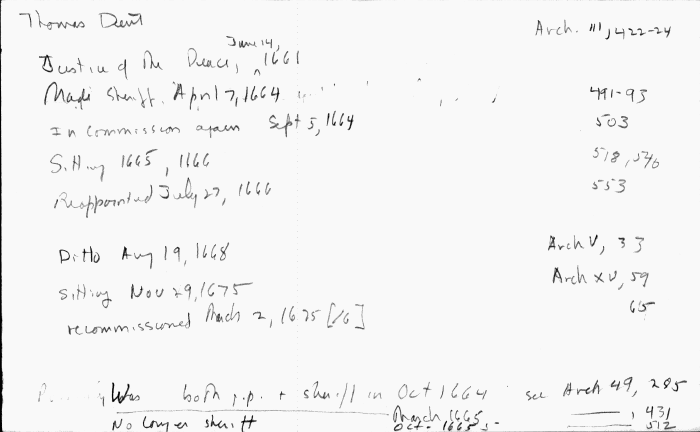 Thomas Dent
Arch. III, 422-24
June 14,
Justice of the Peace, ^ 1661
Made Sheriff. April 7, 1664 491-93
In commission again Sept 5, 1664 503
Sitting 1665, 1666 518, 546
Reappointed July 27, 1666 553
Ditto Aug 19, 1668 Arch V, 33
Sitting Nov 29, 1675 Arch XV, 59
recommissioned March 2, 1675 [/6] 65
Was both j.p. + sheriff in Oct 1664 see Arch 49, 285
No longer sheriff March 1665 ——, 431
Oct. 1665 512